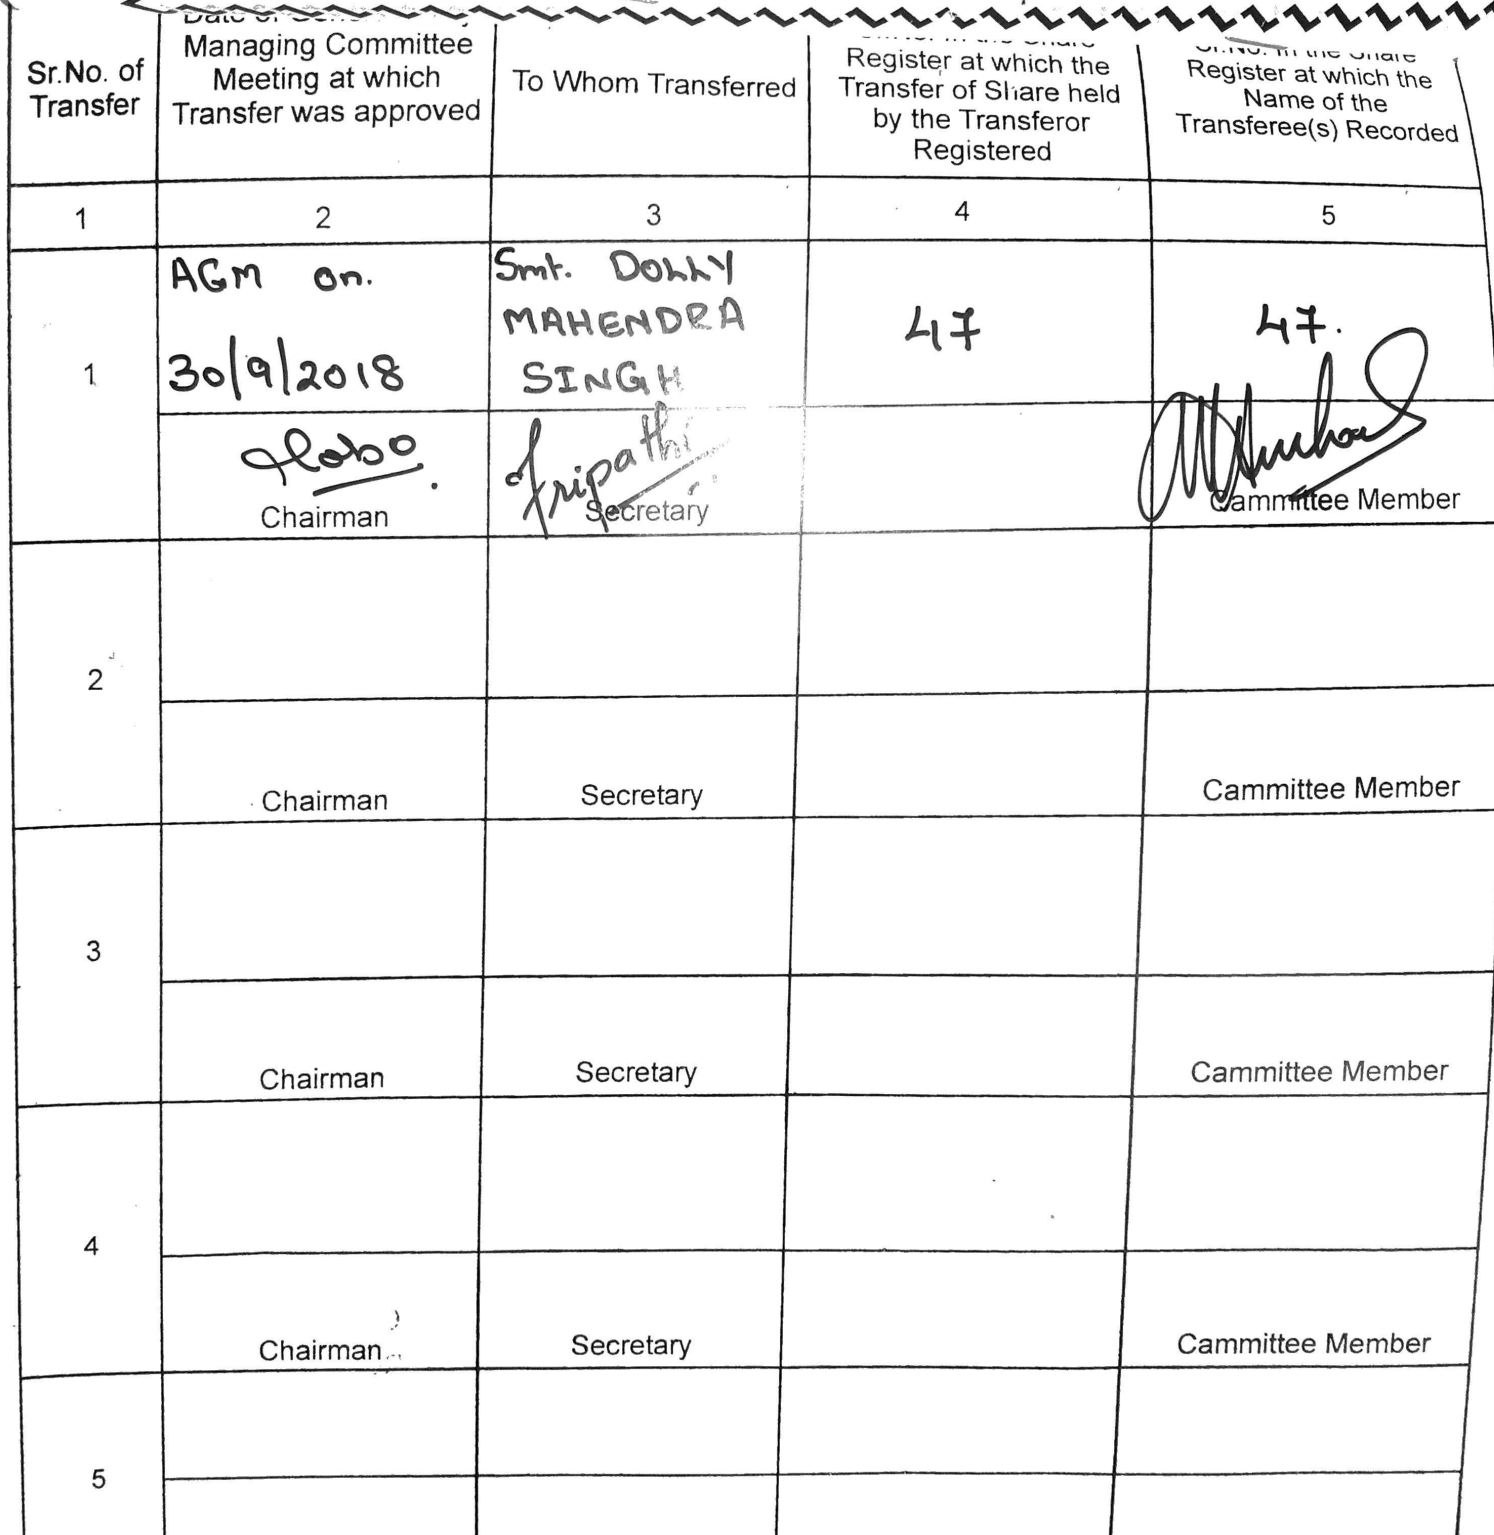 Sr.No. of
Transfer
Managing Committee
Meeting at which
Transfer was approved
To Whom Transferred
Register at which the
Transfer of Share held
by the Transferor
Registered
Sr.No. in the Share
Register at which the
Name of the
Transferee(s) Recorded
1
2
3
4
5
1
AGM on.
30/9/2018
Smt. DOLLY
MAHENDRA
SINGH
47
47.
Tripathi
Chairman
Secretary
Cammittee Member
2
Chairman
Secretary
Cammittee Member
3
Chairman
Secretary
Cammittee Member
4
Chairman
Secretary
Cammittee Member
5